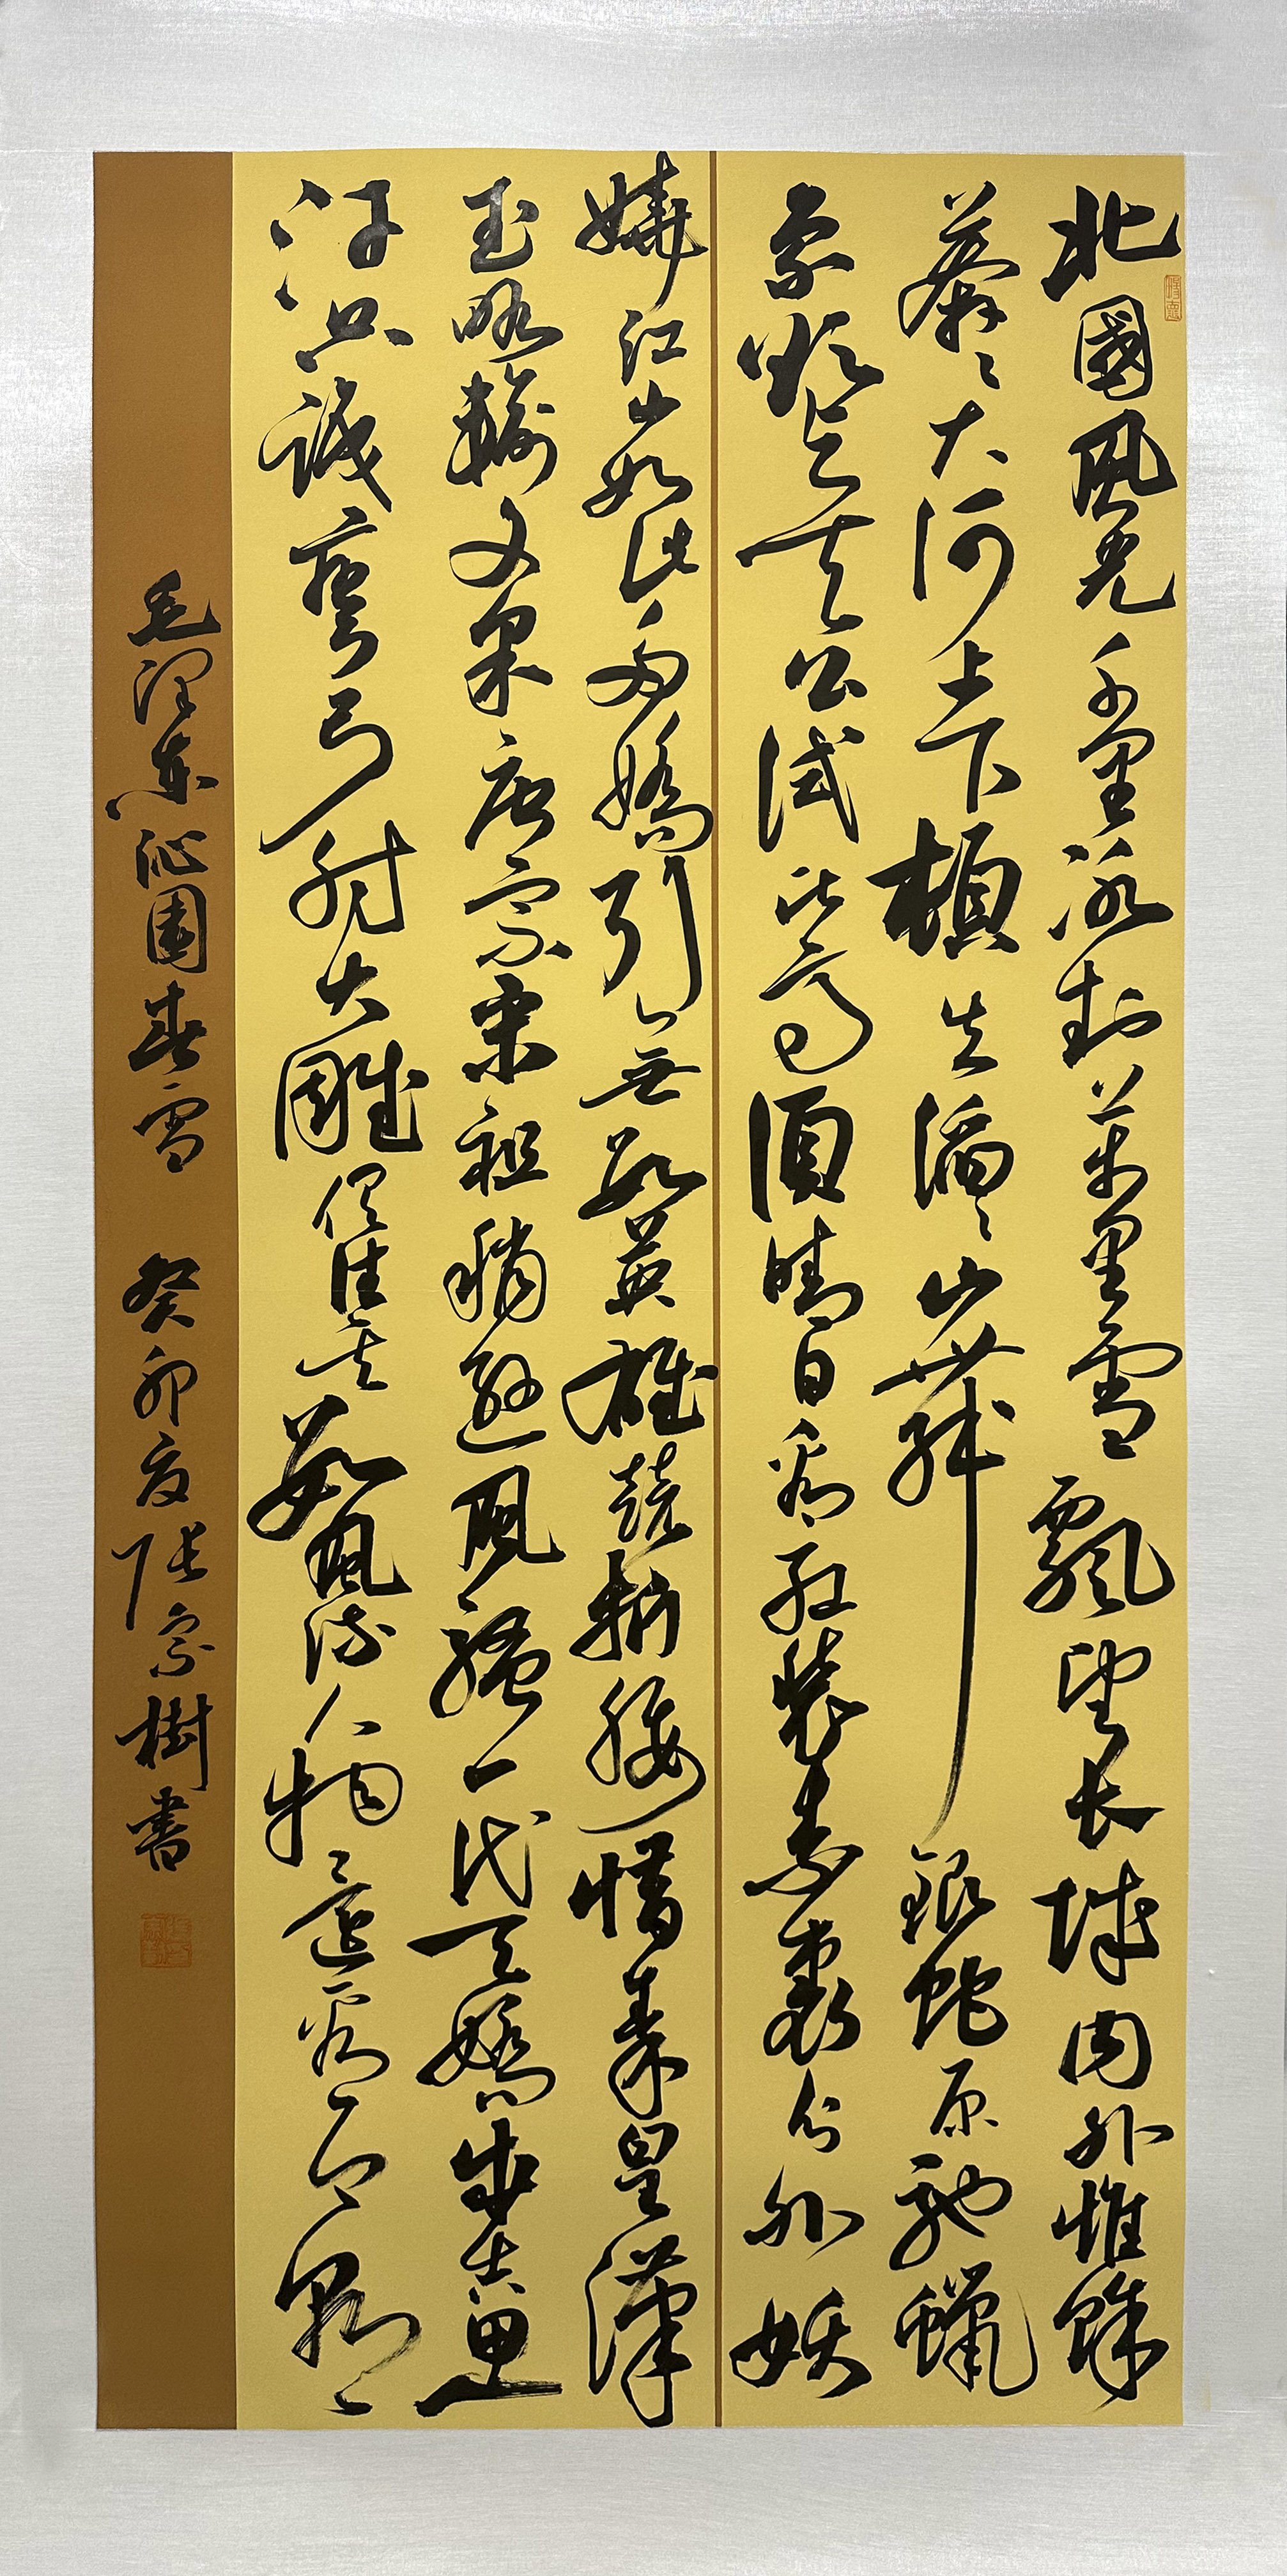 北國風光千里冰封萬里雪飄望长城内外惟餘
莽々大河上下頓失滔々山舞銀蛇原馳蠟
象欲与天公試比高須晴日看红装素裹分外妖
娆江山如此多嬌引無數英雄競折腰惜秦皇漢
武略輸文采唐宗宋祖稍遜風騷一代天嬌成吉思
汗只識彎弓射大雕俱往矣數風流人物還看今朝
毛泽东沁園春雪 癸卯夏張宗樹書